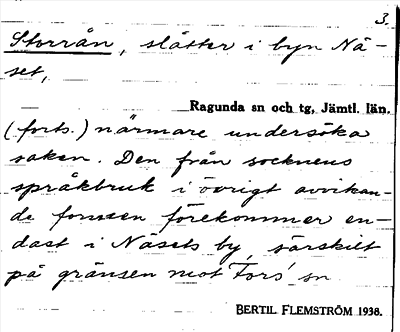 3.
Storrån, slåtter i byn Nä-
set,
Ragunda sn och tg, Jämtl. län.
(forts.) närmare undersöka
saken. Den från socknens
språkbruk i övrigt avvikan-
de formen förekommer en-
dast i Näsets by, särskilt
på gränsen mot Fors sn
BERTIL FLEMSTRÖM 1938.